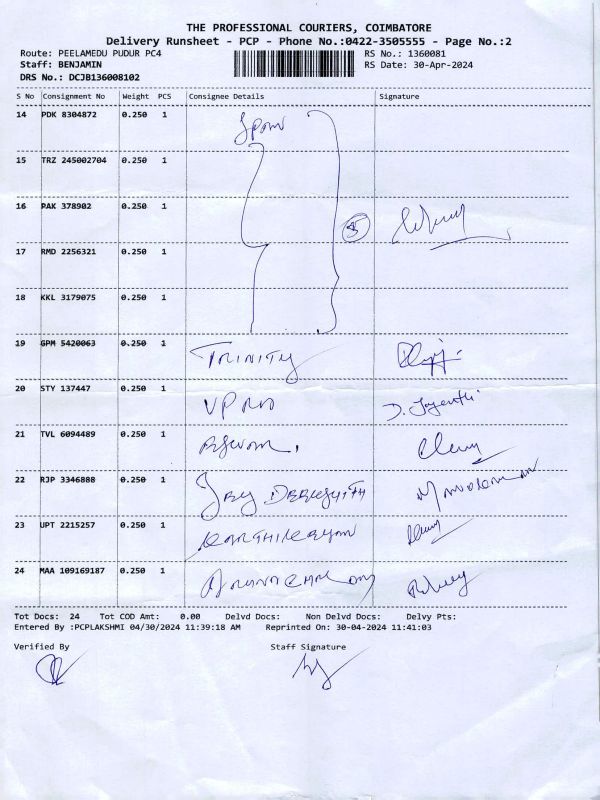 THE PROFESSIONAL COURIERS, COIMBATORE
Delivery Runsheet - PCP - Phone No.:0422-3505555 - Page No.:2
Route: PEELAMEDU PUDUR PC4 RS No.: 1360081
Staff: BENJAMIN RS Date: 30-Apr-2024
DRS No.: DCJB136008102
S No Consignment No Weight PCS Consignee Details Signature
14 PDK 8304872 0.250 1
15 TRZ 245002704 0.250 1
16 PAK 378902 0.250 1
5
17 RMD 2256321 0.250 1
18 KKL 3179075 0.250 1
19 GPM 5420063 0.250 1 TRINITY
20 STY 137447 0.250 1 D. Jayanthi
21 TVL 6094489 0.250 1
22 RJP 3346888 0.250 1
23 UPT 2215257 0.250 1 KARTHIKEYAN
24 MAA 109169187 0.250 1
Tot Docs: 24 Tot COD Amt: 0.00 Delvd Docs: Non Delvd Docs: Delvy Pts:
Entered By :PCPLAKSHMI 04/30/2024 11:39:18 AM Reprinted On: 30-04-2024 11:41:03
Verified By Staff Signature